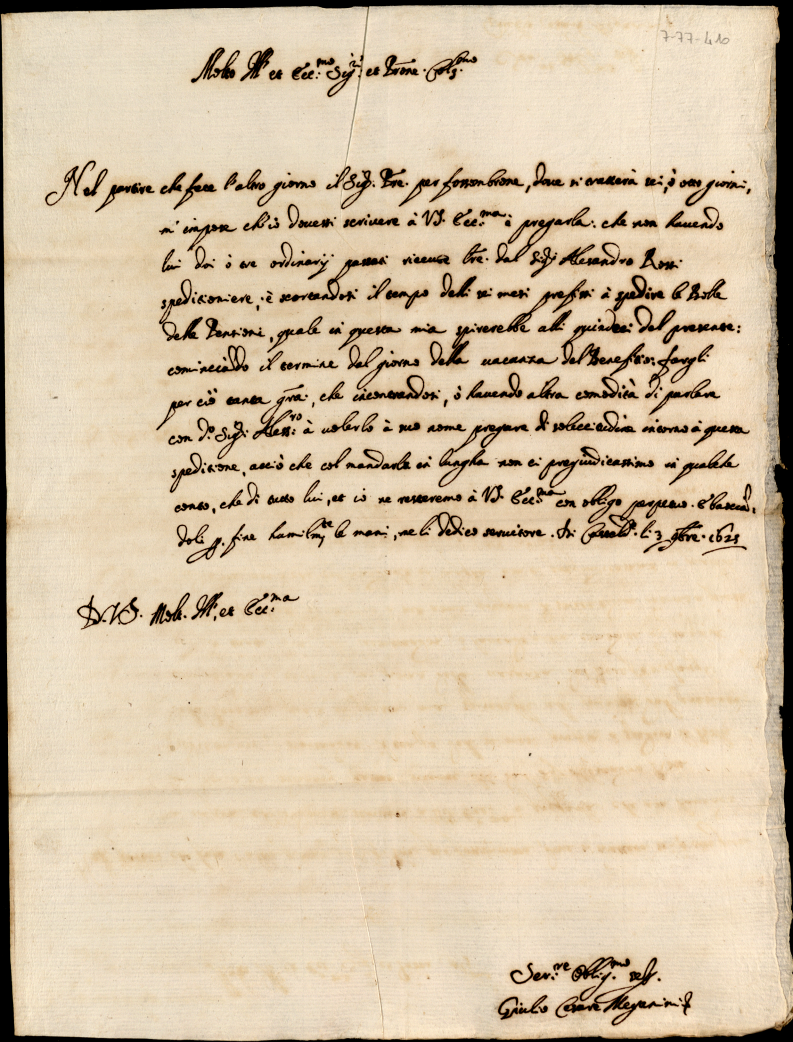 7-77-410
Molto Ill.re et Ecc.mo Sig.r et Prone. Col.mo
Nel partire che fece l'altro giorno il Sig. Pre. per fossombrone, dove si tratterà sei, ò otto giorni,
m'impose ch'io dovessi scrivere à V.S. Ecc.ma è pregarla. che non havendo
lui doi ò tre ordinarij passati ricevute lre. dal Sig.r Alesandro Rossi
speditioniere, è scortandosi il tempo delli sei mesi prefissi à spedire le Bolle
della Pensioni, quale in questa mia spirerebbe alli quindeci del presente:
cominciãdo il termine dal giorno della vacanza del Benefitio: fargli
per ciò tanta gra:, che incontrandosi, ò havendo altra comodità di parlare
con d.o Sig.r Aless.ro à volerlo à suo nome pregare di solecitudine intorno à questa
speditione, acciò che col mandarla in lungha non ci pregiudicassimo in qualche
conto, che di tutto lui, et io ne restaremo à V.S. Ecc.ma con obligo perpetuo. E basciã-
doli p. fine humilm.te le mani, me li dedico servitore. Di li 3 9bre. 1625
D. V.S. Molt. Ill.re et Ecc.ma
Ser.re Oblig.mo
Giulio Cesare